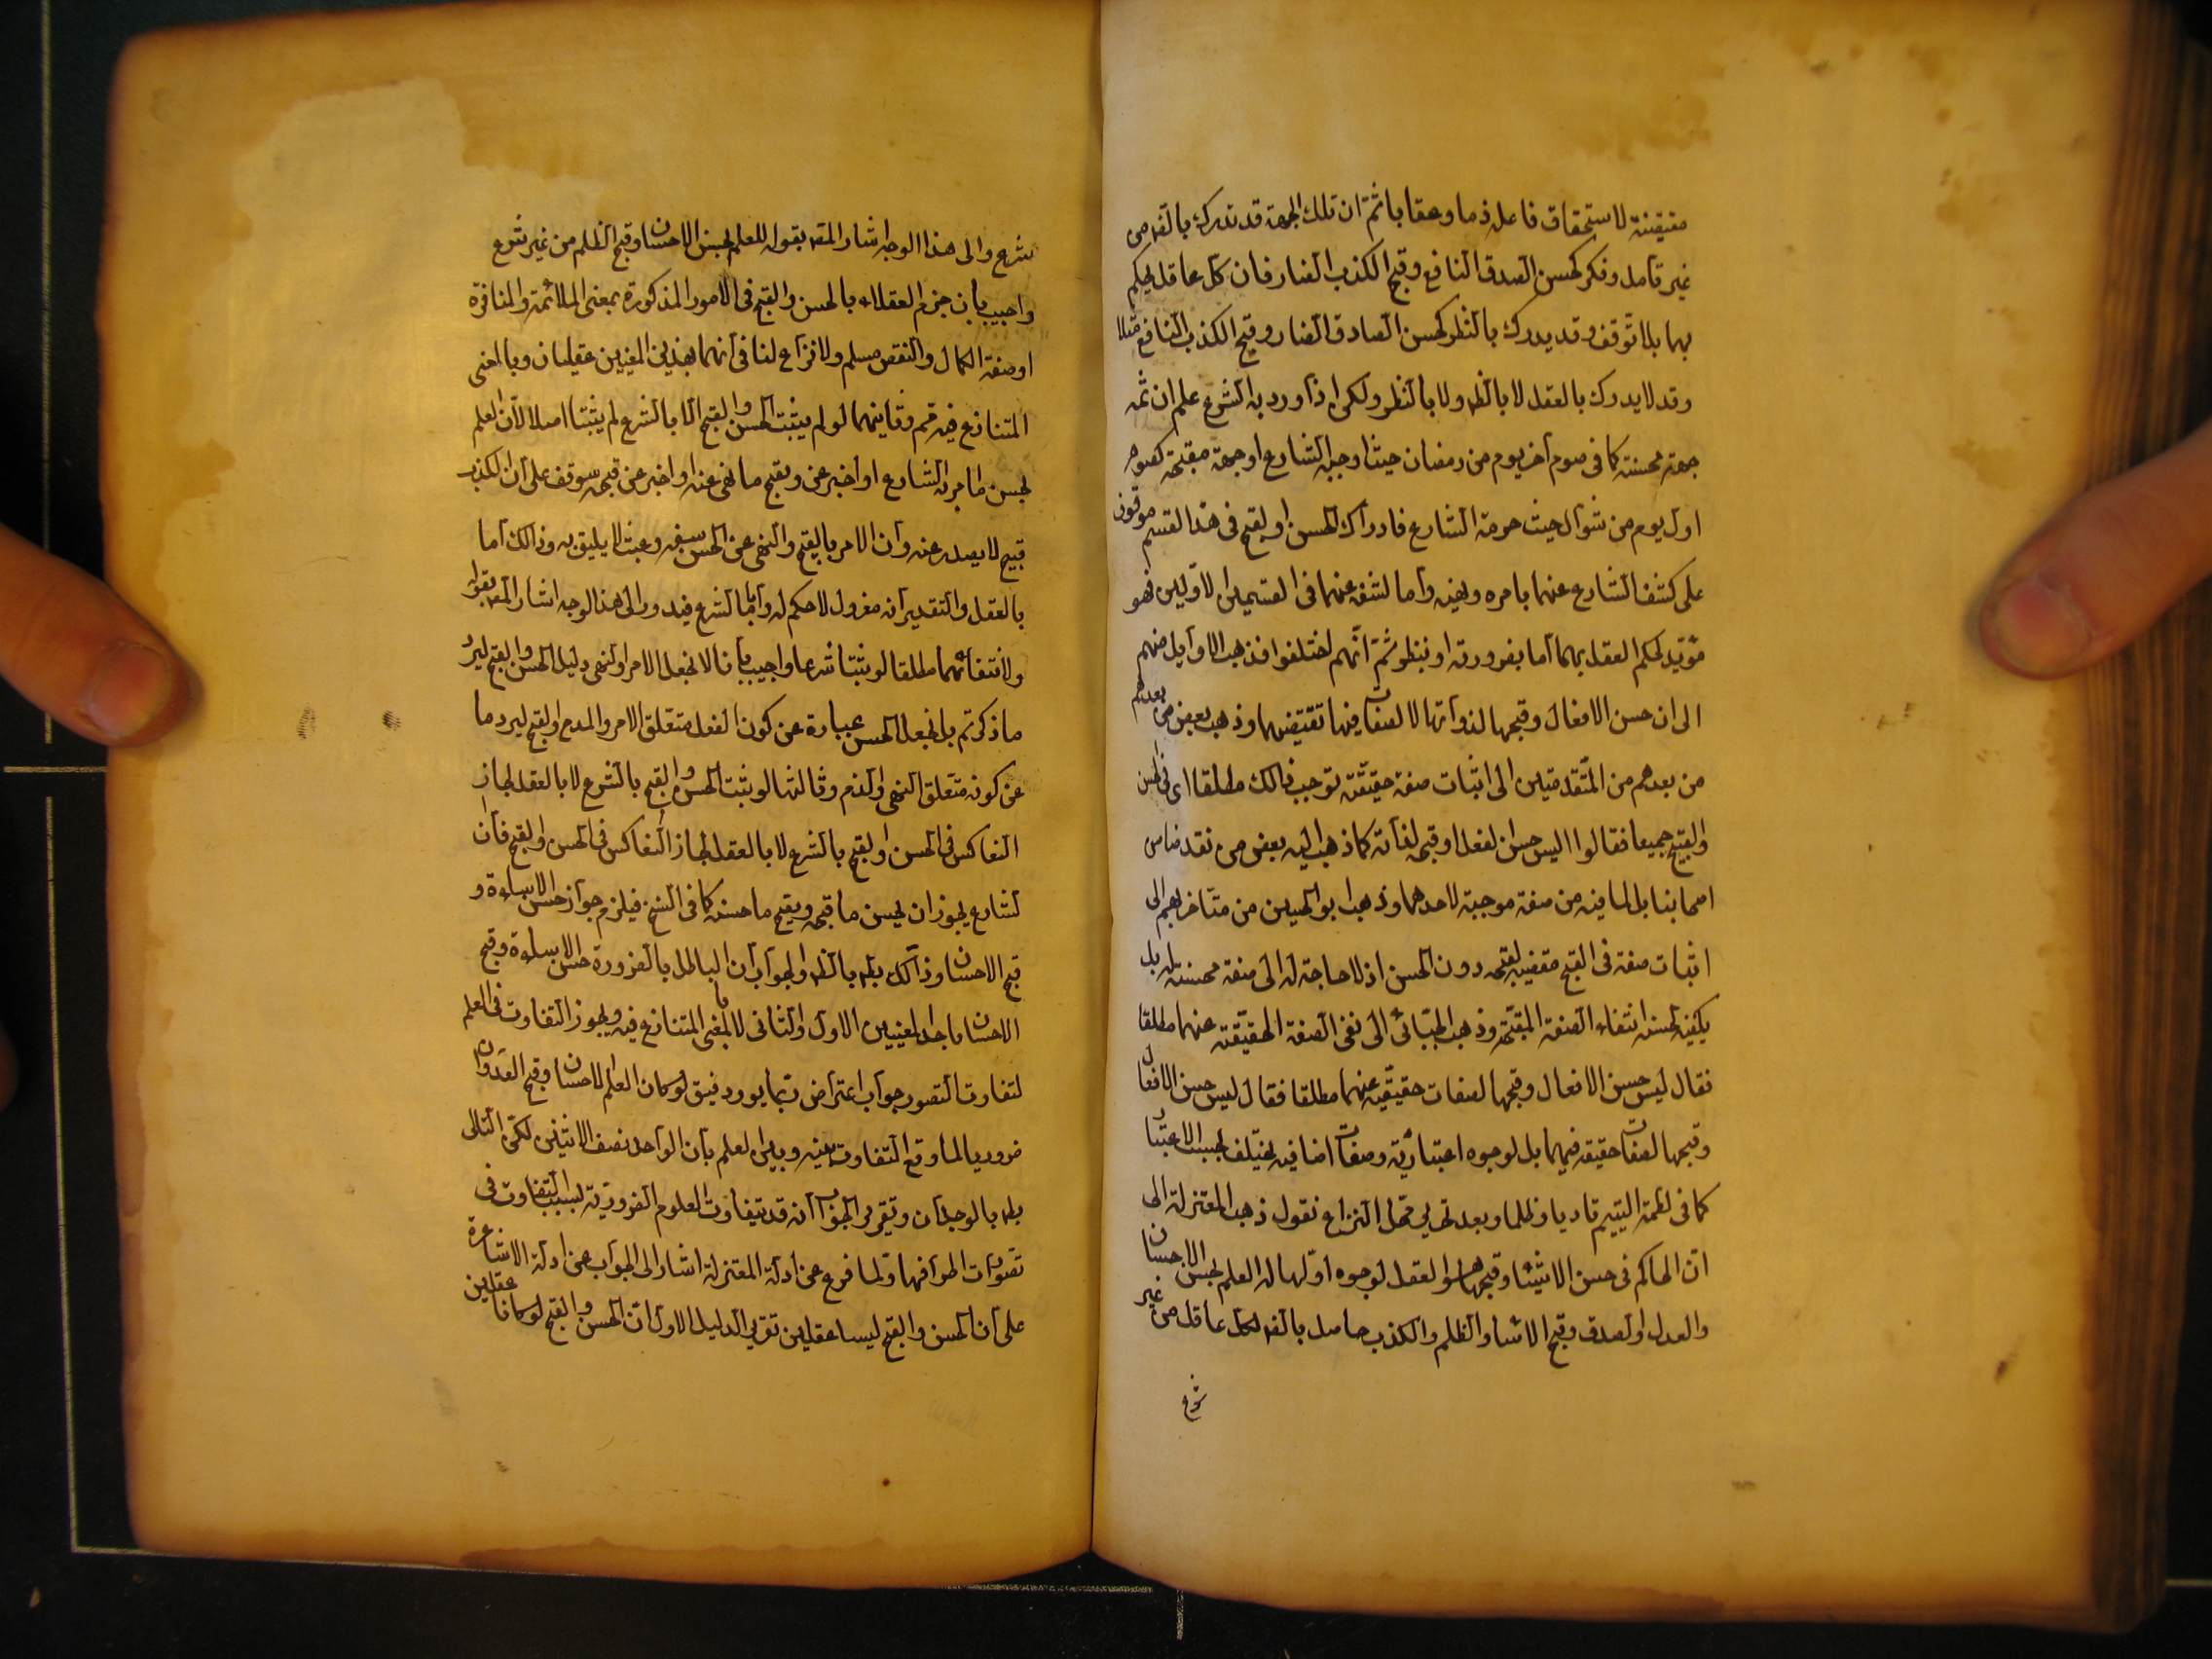 مقتضية لاستحقاق فاعله ذما وعقابا ثم ان تلك الجهة قد تدرك بالضه من
غير تأمل وفكر كحسن الصدق النافع وقبح الكذب الضار فان كل عاقل يحكم
بهما بلا توقف وقد يدرك بالنظر كحسن الصادق الضار وقبح الكذب النافع مثلا
وقد لا يدرك بالعقل لا بالضه ولا بالنظر ولكن اذا ورد به الشرع علم ان ثمه
جهة محسنة كما في صوم آخر يوم من رمضان حيث اوجبه الشارع او جهة مقبحة كصوم
اول يوم من شوال حيث حرمة الشارع فادراك الحسن او لقبح في هذا لقسم موقوف
على كشف الشارع عنهما بامره ونهيه واما لشفه عنهما في القسمين الاولين فهو
مؤيد لحكم العقل بهما اما بضرورته او بنظر ثم انهم اختلفوا فذهب الاوايل منهم
الى ان حسن الافعال وقبحها لذواتها لا لصفات فيها تقتضيهما وذهب بعض من بعدهم
من بعدهم من المتقدمين الى اثبات صفة حقيقته توجب ذالك مطلقا اى في الحسن
والقبح جميعا فقالوا اليس حسن لفعل او قبحه لذاته كما ذهب اليه بعض من تقد منا من
اصحابنا بل لما فيه من صفة موجبة لاحدهما وذهب ابو الحسين من متاخريهم الى
اثبات صفة في القبح مقضيه لقبحه دون الحسن اذ لا حاجة له الى صفة محسنة له بل
يكفيه لحسنه انتفاء الصفة المقبحة وذهب الجبائي الى نفى الصفة الحقيقته عنهما مطلقا
فقال ليس حسن الافعال وقبحها لصفات حقيقيه عنهما مطلقا فقال ليس حسن الافعال
وقبحها لصفات حقيقه فيهما بل لوجوه اعتبارية وصفات اضافيه تختلف بحسب الاعتبار
كما في لطمة اليتيم تاديبا وظلما وبعد تحرير محل النزاع نقول ذهب المعتزلة الى
ان الحاكم في حسن الاشيا وقبحها هو العقل لوجوه اولها له العلم بحسن الاحسان
والعدل والصدق وقبح الاشا والظلم والكذب حاصل بالضه لكل عاقل من غير
شرع
شرع والى هذا الوجه اشار المصه بقوله للعلم بحسن الاحسان وقبح الظلم من غير شرع
واجيب بان جزم العقلاء بالحسن والقبح في الامور المذكورة بمعنى الملائمة والمنافرة
او صفة الكمال والنقص مسلم ولا نزاع لنا في انهما بهذين المعنيين عقليان وبالمعنى
المتنازع فيه ثم وثاينهما لو لم يثبت الحسن والقبح الا بالشرع لم يثبتا اصلا لان العلم
بحسن ما امر به الشارع او اخبر عن وبقبح ما نهى عنه او اخبر عن قبحه سوقف على ان الكذب
قبيح لا يصدر عنه وان الامر بالقبح والنهى عن الحسن سفه وعبث لا يليق به وذالك اما
بالعقل والتقدير انه معزول لا حكم له واما بالشرع فيدور والى هذا لوجه اشار المصه بقوله
ولانتفائهما مطلقا لو ثبتا شرعا واجيب بانا لا نجعل الامر او لنهى دليل الحسن والقبح ليرد
ما ذكرتم بل نجعل الحسن عبارة عن كون الفعل متعلق الامر والمدح او لقبح ليرد ما
عن كونه متعلق النهى والذم وثالثها لو ثبت الحسن والقبح بالشرع لا بالعقل لجاز
التعاكس في الحسن والقبح بالشرع لا بالعقل لجاز التعاكس في الحسن والقبح فان
لشارع يجوز ان يحسن ما قبحه ويقبح ما حسنه كما في النسخ فيلزم جواز حسن الاساءة و
قبح الاحسان وذالك بطه بالضه والجواب ان الباطل بالضرورة حسن الاساءة وقبح
الاحسان باحد المعنيين الاول والثاني لا بالمعنى المتنازع فيه ويجوز التفاوت في العلم
لتفاوت التصور جواب اعتراض ربما يورد فيق لو كان العلم الاحسان وقبح العدوان
ضروريا لما وقع التفاوت بينه وبين العلم بان الواحد نصف الاثنين لكن التالى
بطه بالوجدان وتقرير الجواب انه قد تتفاوت العلوم الضرورية بسبب التفاوت في
تصورات اطرافها ولما فرع عن ادلة المعتزلة اشار الى الجواب عن ادلة الاشاعرة
على ان الحسن والقبح ليسا عقليين تقرير الدليل الاول ان الحسن والقبح لو كانا عقليين